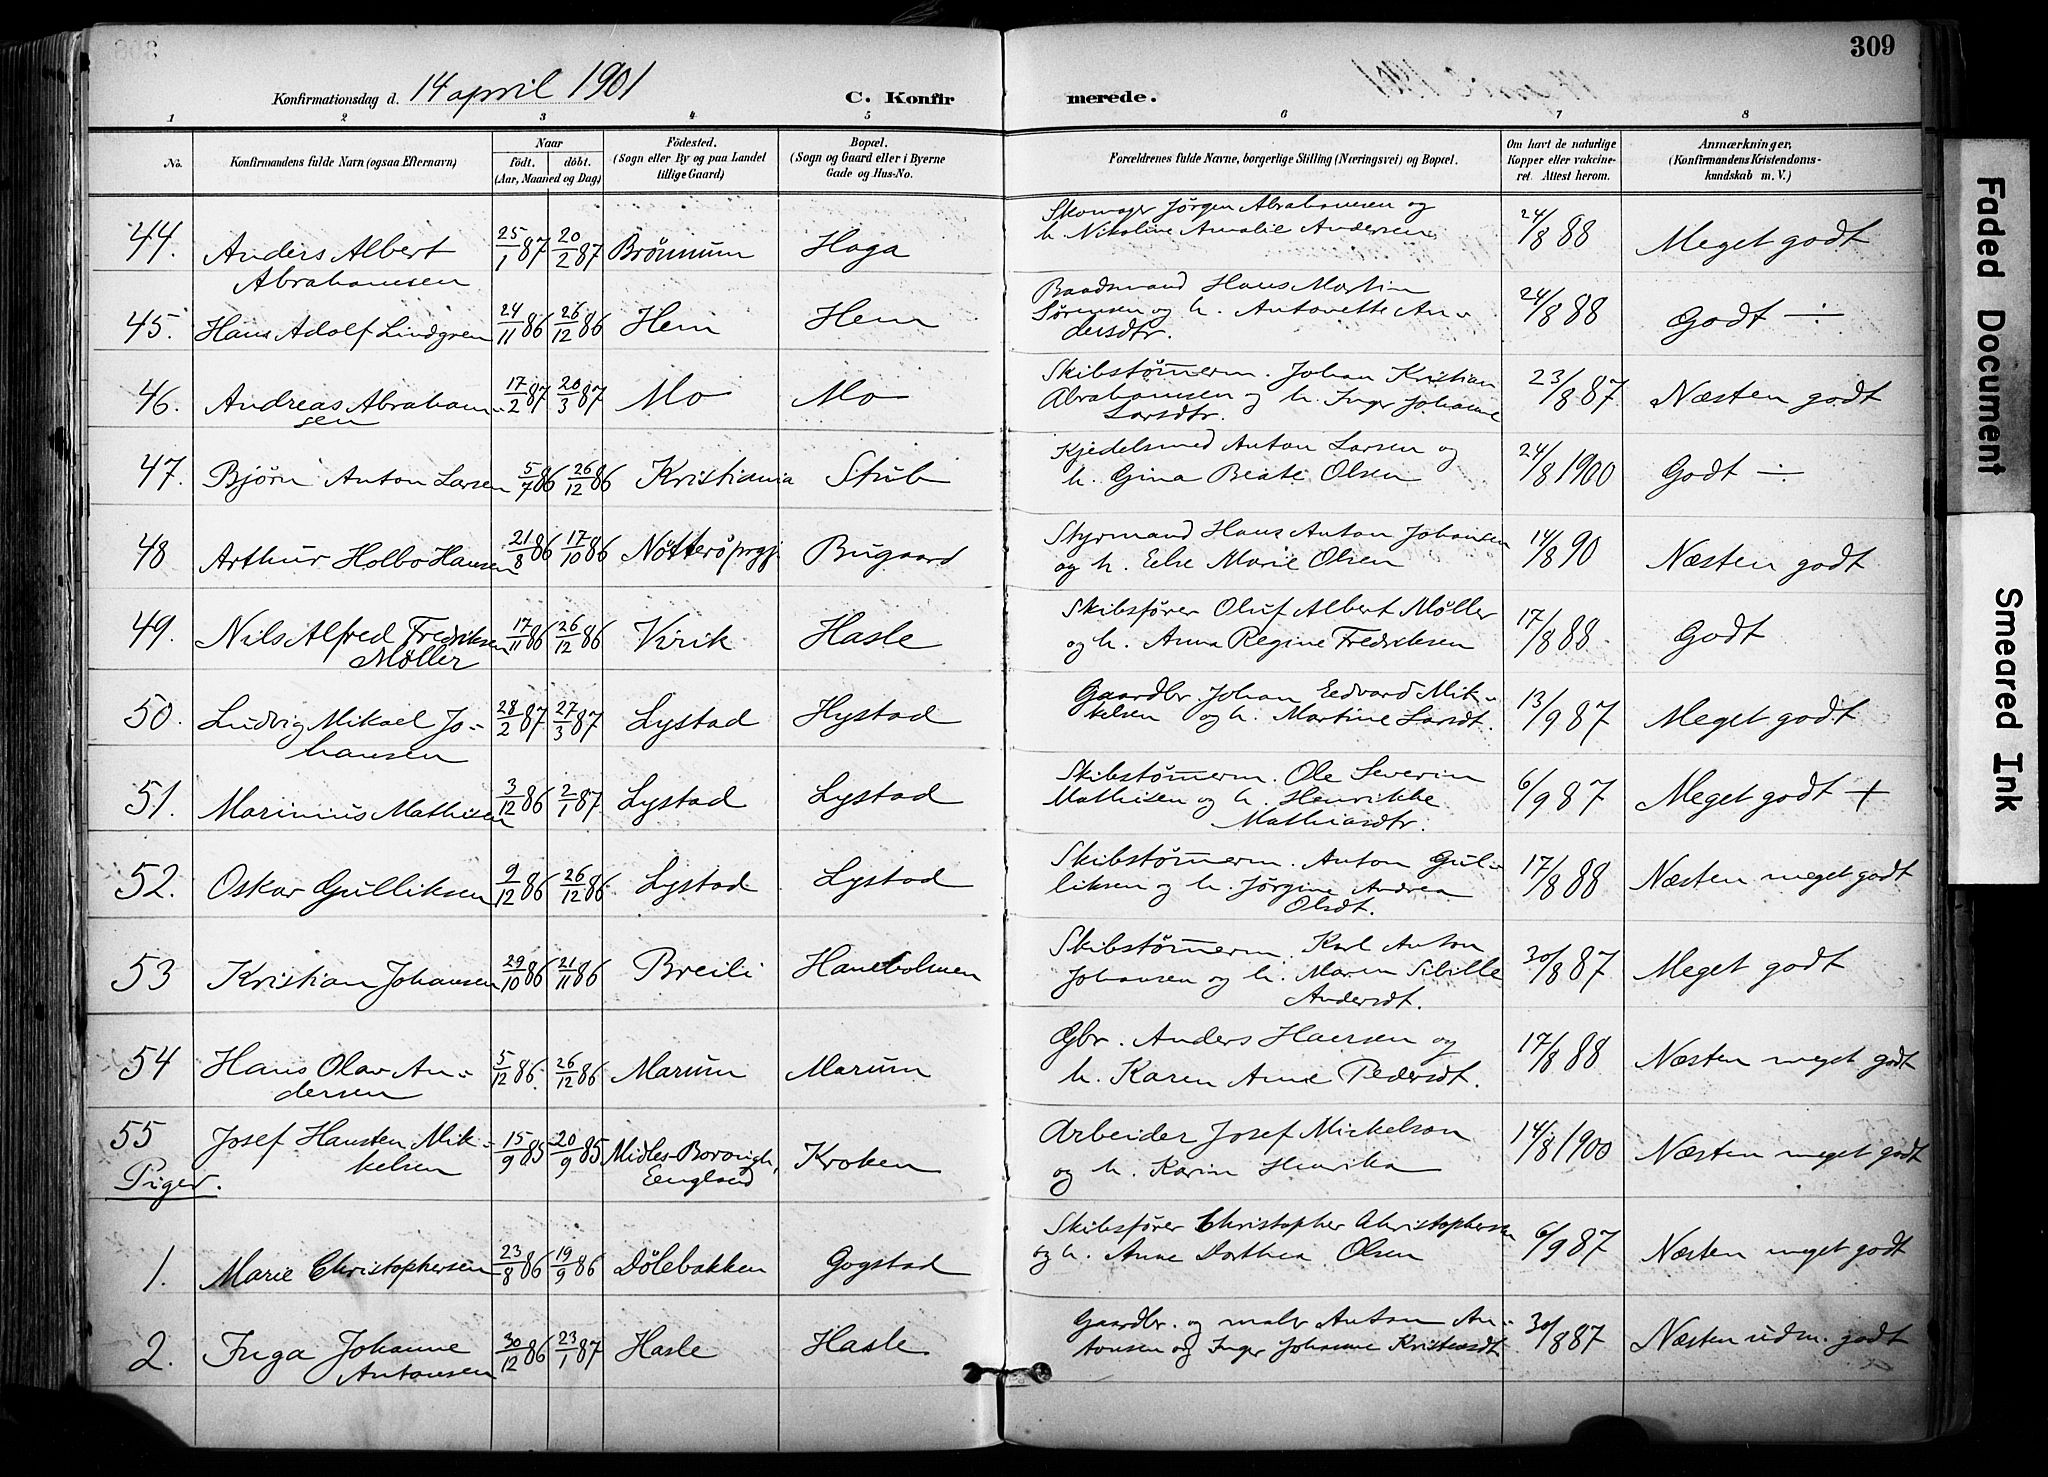 309
Konfirmationsdag d. 14 april 1901 C. Konfirmerede.
1 2 3 4 5 6 7 8
No. Konfirmandens fulde Navn (ogsaa Efternavn) Naar födt. döbt. (Aar, Maaned og Dag) Födested. (Sogn eller By og paa Landet tillige Gaard) Bopæl. (Sogn og Gaard eller i Byerne Gade og Hus-No. Forældrenes fulde Navne, borgerlige Stilling (Næringsvei) og Bopæl. Om havt de naturlige Kopper eller vakcineret. Attest herom. Anmærkninger, (Konfirmandens Kristendomskundskab m. V.)
44. Anders Albert Abrahamsen 25/1 87 20/2 87 Brönnum Haga Skomager Jørgen Abrahamsen og h. Nikoline Amalie Andersen 24/8 88 Meget godt
45. Hans Adolf Lindgren 24/11 86 26/12 86 Hem Hem Baadsmand Hans Martin Sørensen og h. Antonette Andersdtr. 24/8 88 Godt ÷
46. Andreas Abrahamsen 17/2 87 20/3 87 Mo Mo Skibstømerm. Johan Kristian Abrahamsen og h. Inger Johanne Larsdtr. 23/8 87 Næsten godt
47. Bjørn Anton Larsen 5/7 86 26/12 86 Kristiania Stub Kjedelsmed Anton Larsen og h. Gina Beate Olsen 24/8 1900 Godt ÷
48 Arthur Holbo Hansen 21/8 86 17/10 86 Nøtterø prgj. Bugaard Styrmand Hans Anton Johansen og h. Else Marie Olsen 14/8 90 Næsten godt
49. Nils Alfred Fredriksen Møller 17/11 86 26/12 86 Virik Hasle Skibsfører Oluf Albert Møller og h. Anna Regine Fredriksen 17/8 88 Godt
50. Ludvig Mikael Johansen 28/2 87 27/3 87 Lystad Hystad Gaardbr. Johan Eedvard Mikkelsen og h. Martine Larsdt. 13/9 87 Meget godt
51. Marinius Mathisen 3/12 86 2/1 87 Lystad Lystad Skibstømerm. Ole Severin Mathisen og h. Henrikke Mathiasdtr. 6/9 87 Meget godt +
52. Oskar Gulliksen 9/12 86 26/12 86 Lystad Lystad Skibstømerm. Anton Gulliksen og h. Jørgine Andrea Olsdt. 17/8 88 Næsten meget godt
53 Kristian Johansen 29/10 86 21/11 86 Breili Haneholmen Skibstømerm. Karl Anton Johansen og h. Maren Sibille Andersdt. 30/8 87 Meget godt
54 Hans Olav Andersen 5/12 86 26/12 86 Marum Marum Gbr. Anders Hansen og h. Karen Anne Pedersdt. 17/8 88 Næsten meget godt
55 Josef Hansten Mikkelsen 15/9 85 20/9 85 Midles-Borough, Eengland Kroken Arbeider Josef Mickelson og h. Karin Henrika 14/8 1900 Næsten meget godt
Piger.
1. Marie Christophersen 23/8 86 19/9 86 Dølebakken Gogstad Skibsfører Christopher Christophersen og h. Anne Dorthea Olsen 6/9 87 Næsten meget godt
2. Inga Johanne Antonsen 30/12 86 23/1 87 Hasle Hasle Gaardbr. og maler Anton Antonsen og Inger Johanne Kristensdt. 30/8 87 Næsten udm. godt
Faded Document
Smeared Ink